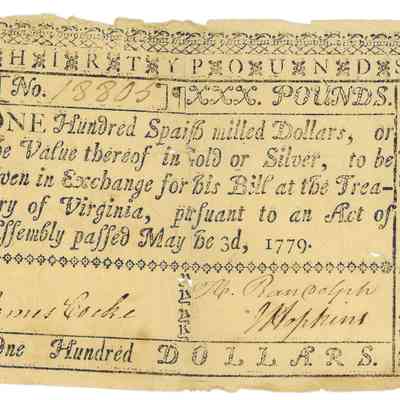 HIRTY POUNDS
No. 18805 ¶XXX. POUNDS.
ONE Hundred Spaiſh milled Dollars, or
he Value thereof in Gold or Silver, to be
iven in Exchange for his Bill at the Trea-
ry of Virginia, purſuant to an Act of
ſſembly paſſed May he 3d, 1779.
M. Randolph
ames Cocke JHopkins
One Hundred DOLLARS.